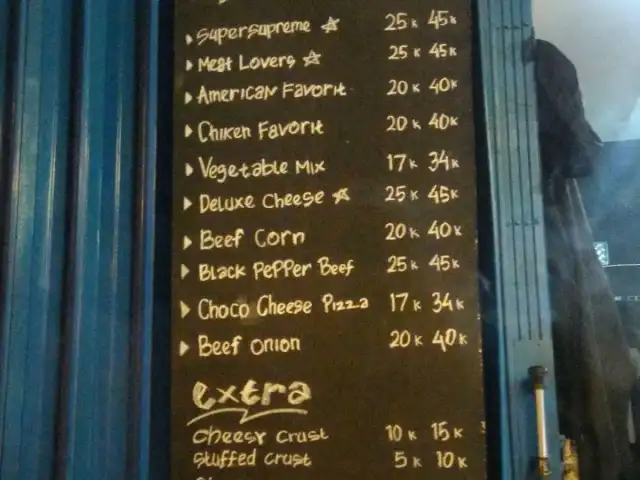 Supersupreme ☆ 25K 45K
Meat Lovers ☆ 25K 45K
American Favorit 20K 40K
Chiken Favorit 20K 40K
Vegetable Mix 17K 34K
Deluxe Cheese ☆ 25K 45K
Beef Corn 20K 40K
Black Pepper Beef 25K 45K
Choco Cheese Pizza 17K 34K
Beef Onion 20K 40K
extra
Cheesy Crust 10K 15K
Stuffed Crust 5K 10K